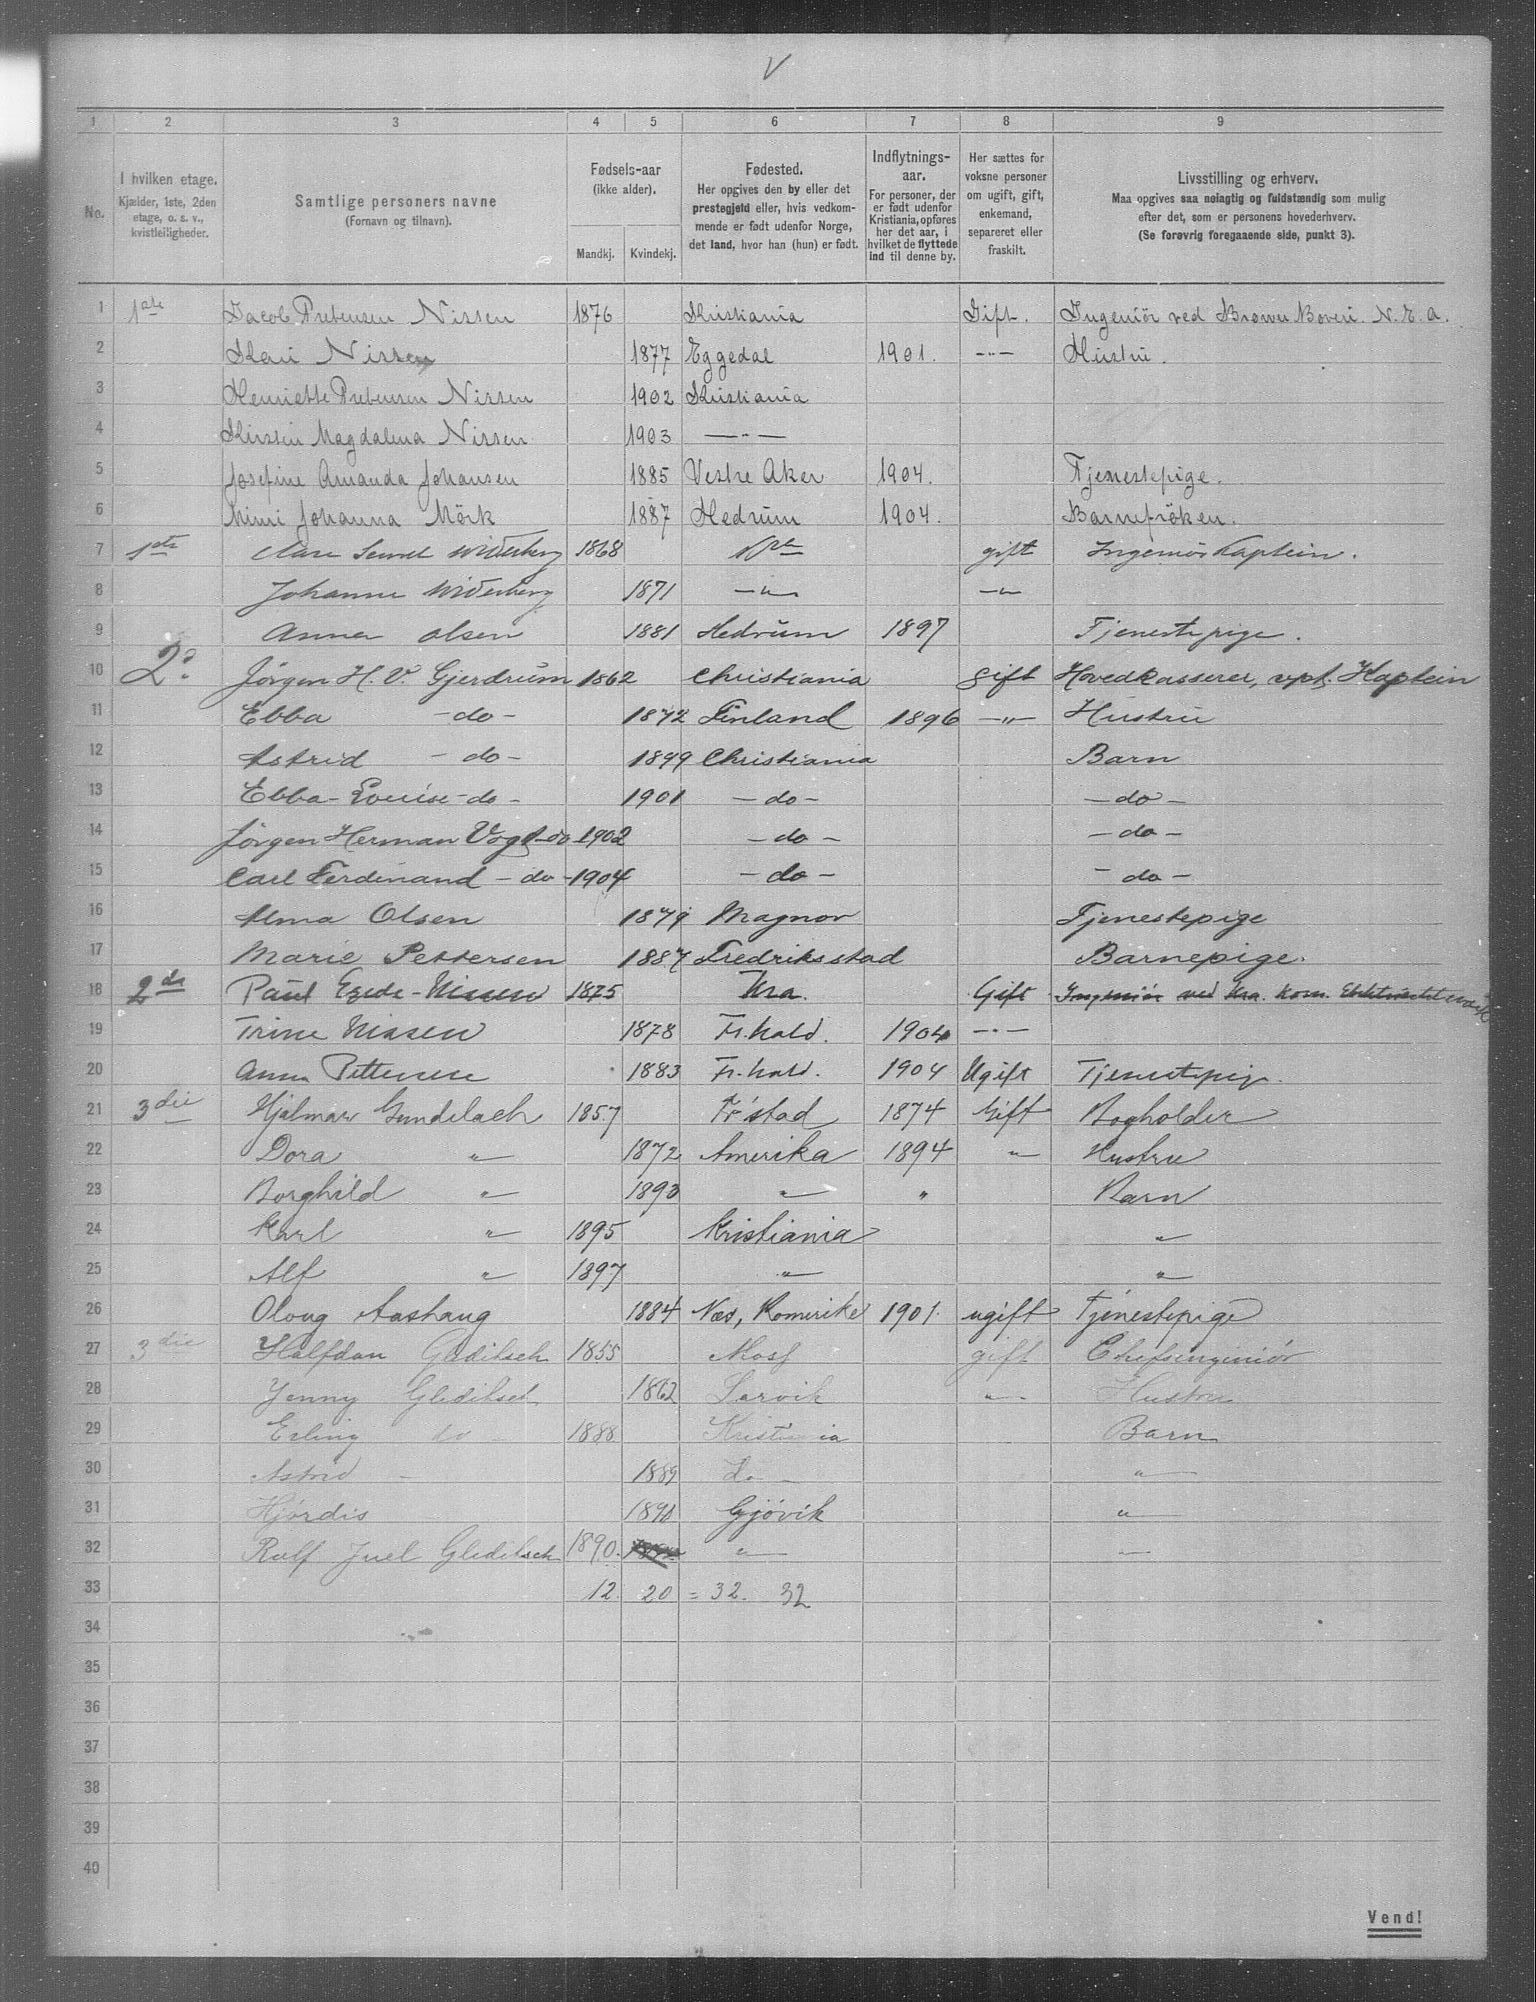 V
1 2 3 4 5 6 7 8 9
No.
I hvilken etage.
Kjælder, 1ste, 2den
etage, o. s. v.,
kvistleiligheder.
Samtlige personers navne
(Fornavn og tilnavn).
Fødsels-aar
(ikke alder).
Mandkj. Kvindekj.
Fødested.
Her opgives den by eller det
prestegjeld eller, hvis vedkom-
mende er født udenfor Norge,
det land, hvor han (hun) er født.
Indflytnings-
aar.
For personer, der
er født udenfor
Kristiania, opføres
her det aar, i
hvilket de flyttede
ind til denne by.
Her sættes for
voksne personer
om ugift, gift,
enkemand,
separeret eller
fraskilt.
Livsstilling og erhverv.
Maa opgives saa nøiagtig og fuldstændig som mulig
efter det, som er personens hovederhverv.
(Se forøvrig foregaaende side, punkt 3).
1 1ste Jacob Prebensen Nissen 1876 Kristiania Gift. Ingeniör ved Brown Boveri. N. E. A.
2 Kari Nissen 1877 Eggedal 1901. -"- Hustru.
3 Henriette Prebensen Nissen 1902 Kristiania
4 Kirsten Magdalena Nissen 1903 -"-
5 Josefine Amanda Johansen 1885 Vestre Aker 1904. Tjenestepige.
6 Mimi Johanna Mörk 1887 Hedrum 1904. Barnefröken.
7 1ste Widerberg 1868 gift Ingeniør Kaptein.
8 Johanne Widerberg 1871 -"- -"-
9 Anna Olsen 1881 Hedrum 1897 Tjenestepige.
10 2. Jørgen H. V. Gjerdrum 1862 Christiania gift Hovedkasserer, vpl. Kaptein
11 Ebba -do- 1872 Finland 1896 -"- Hustru
12 Astrid -do- 1899 Christiania Barn
13 Ebba-Louise-do- 1901 -do- -do-
14 Jørgen Herman Vogt-do- 1902 -do- -do-
15 Carl Ferdinand -do- 1904 -do- -do-
16 Alma Olsen 1879 Magnor Tjenestepige
17 Marie Pettersen 1887 Fredriksstad Barnepige.
18 2den Paul Egede-Nissen 1875 Kra. Gift Ingeniør ved Kra. kom. Elektricitetsværk
19 Trine Nissen 1878 Fr.hald. 1904 -"-
20 Anna Pettersen 1883 Fr.hald. 1904 Ugift Tjenestepig.
21 3die Hjalmar Gundelach 1857 Fr'stad 1874 Gift Bogholder
22 Dora " 1872 Amerika 1894 " Hustru
23 Borghild " 1893 " " Barn
24 Karl " 1895 Kristiania "
25 Alf " 1897 " "
26 Oloug Aashaug 1884 Næs, Romerike 1901. ugift Tjenestepige
27 3die Halfdan Gleditsch 1855 Moss gift Chefsingeniør
28 Jenny Gleditsch 1862 Larvik " Hustru
29 Erling do 1888 Kristiania Barn
30 Astrid - 1889 Do - "
31 Hjørdis 1890 Gjøvik "
32 Rolf Juel Gleditsch 1890. " "
33 12. 20 = 32. 32
34
35
36
37
38
39
40
Vend!